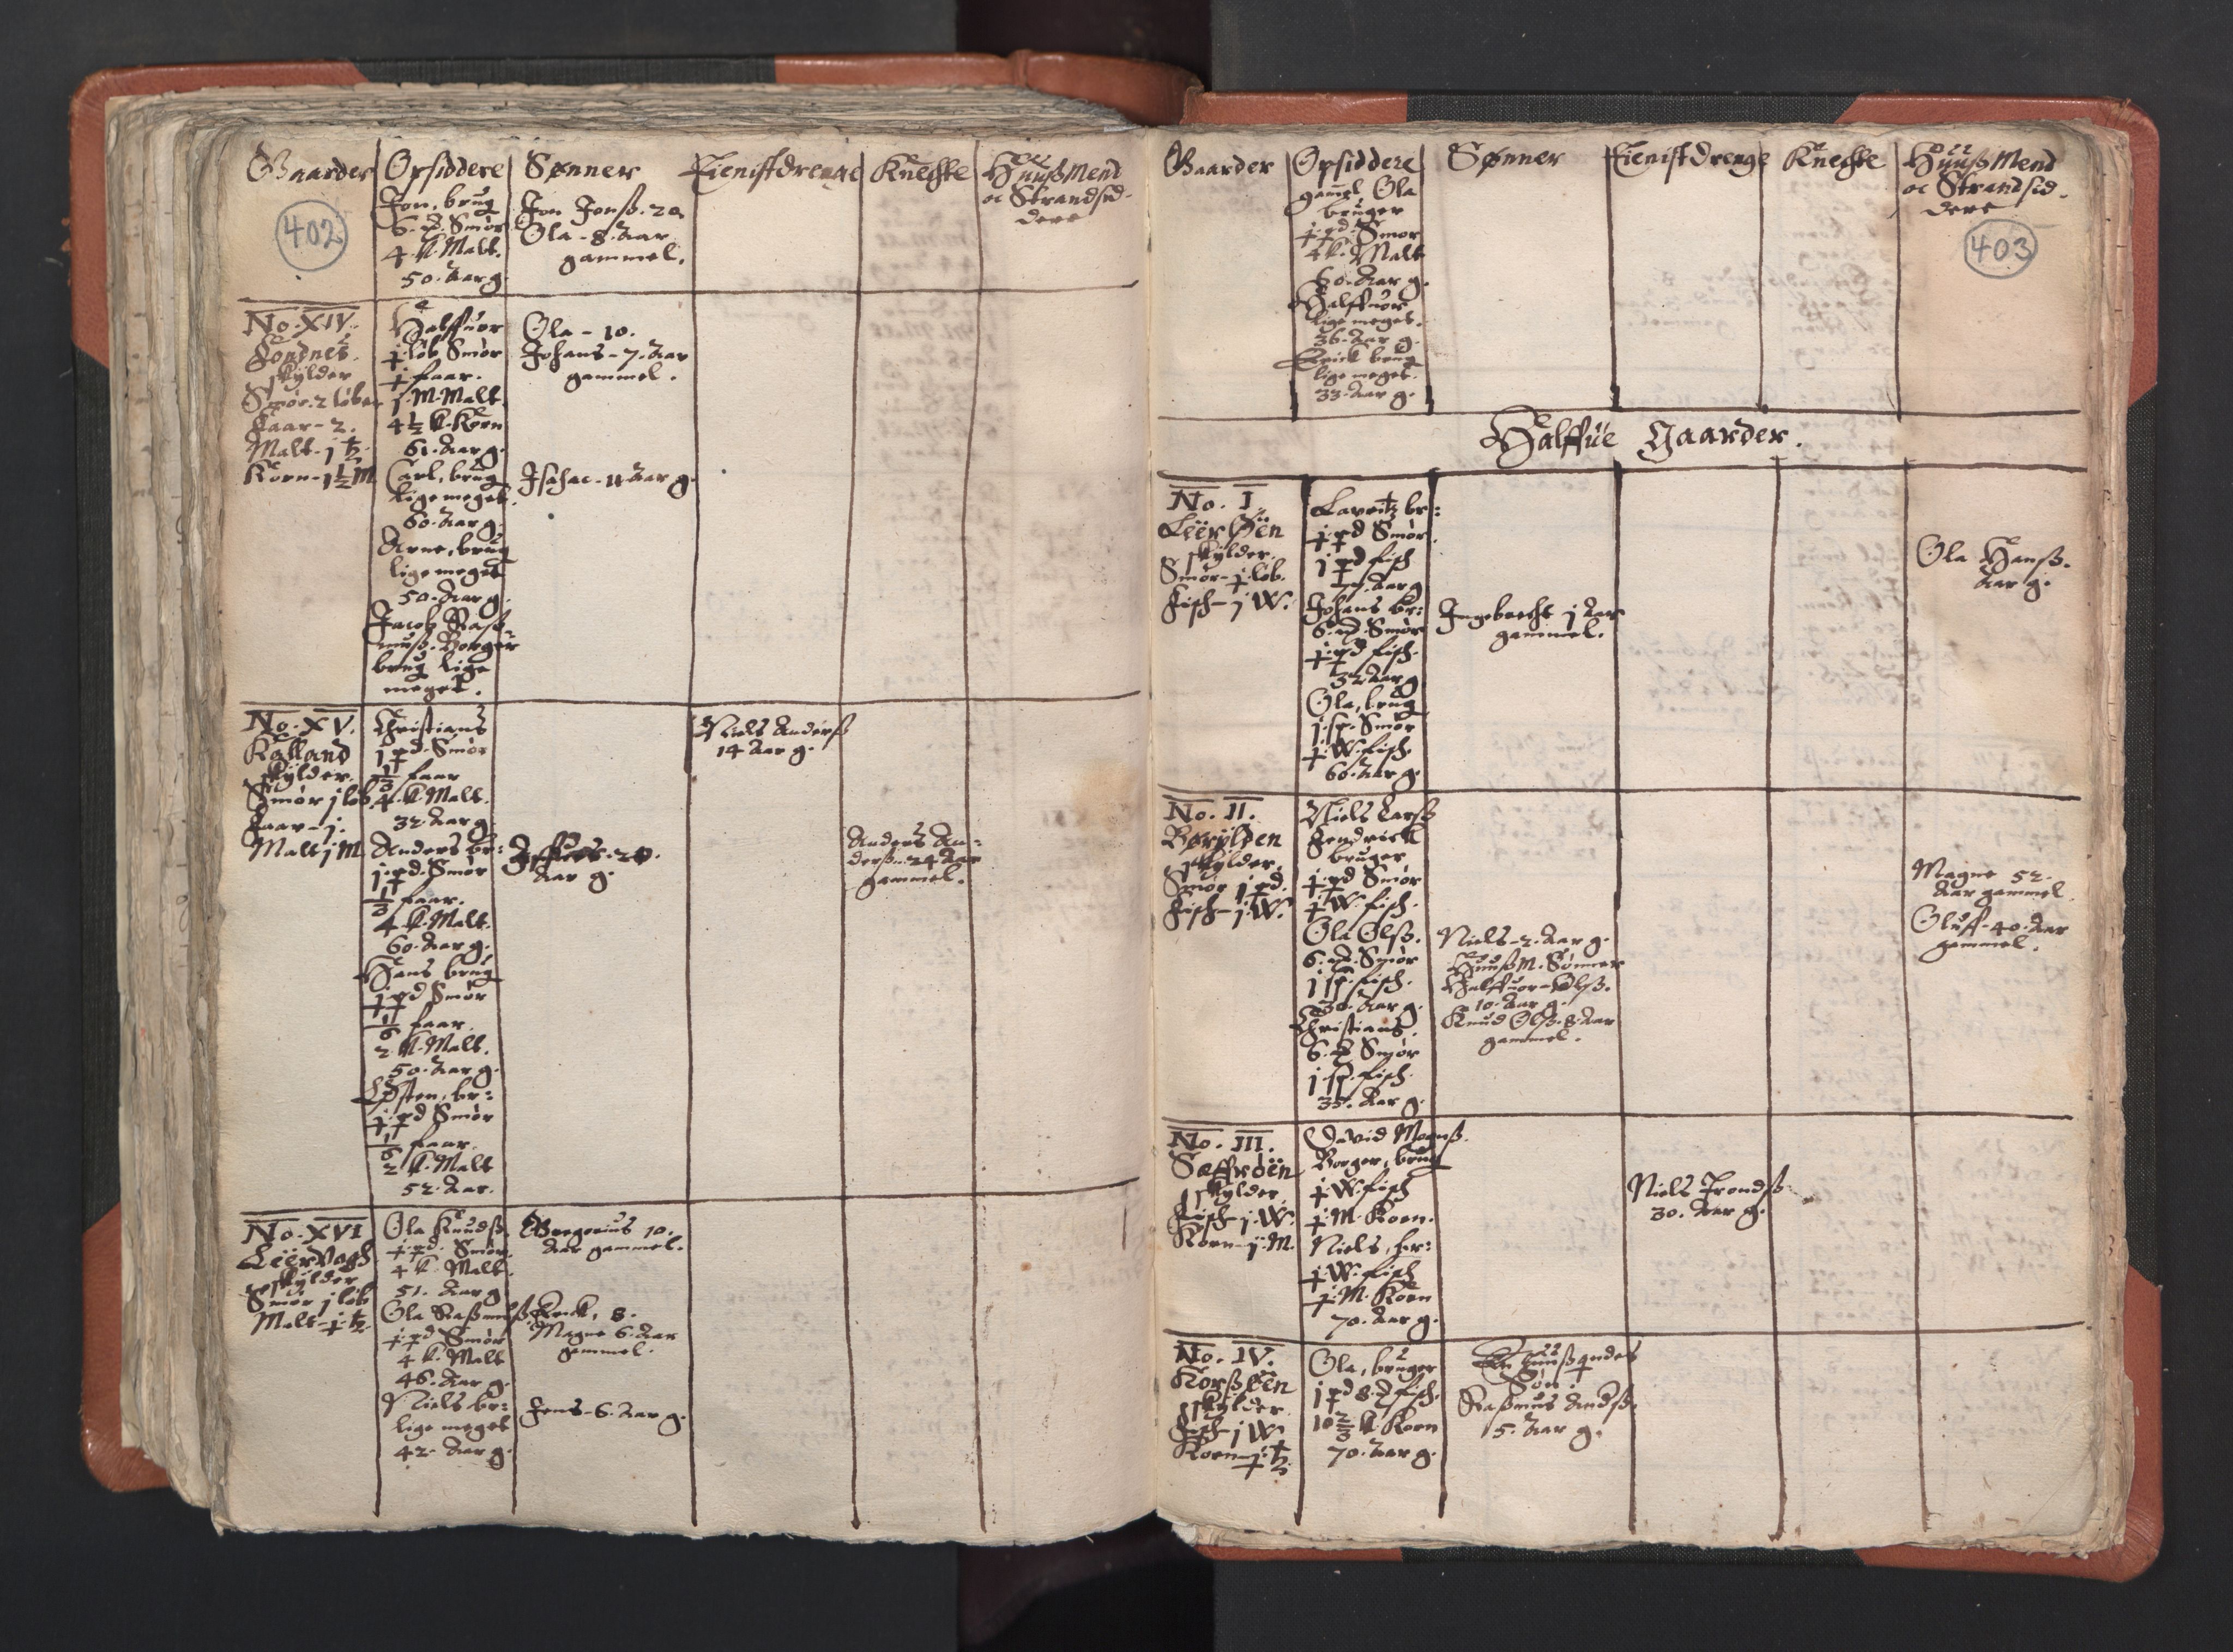 Gaarder
Opsiddere
Sønner
Tienistdrenge
Knechte
Huuß Mend
oc Strandsid-
dere
402
Jon, brug
6. Smør
4. K. Malt.
50. Aar g.
Jon Jonß. 20
Ola - 8. Aar
gammel.
No. XIV.
skylder
Smør. 2 løber
Faar - 2.
Malt - j
Korn - 1½ M
Halffuor
j løb Smør
j faar.
j. M. Malt
4½ K. Korn
61. Aar g.
Carl, brug
lige meget.
60. Aar g.
Arne, brug
lige meget
50. Aar g.
Jacob Raß-
muß. Borger
brug lige
meget.
Ola - 10.
Johans - 7. Aar
gammel.
Isahac - 11 Aar g.
No. XV.
Kalland
skylder.
Smør j løb
Faar - j.
Malt j M
Christians
j pd. Smør
⅓ faar
4. K. Malt.
32. Aar g.
Anders br:
j. pd. Smør
⅓ faar.
4 K. Malt.
60. Aar g.
Hans brug
j pd Smør
⅙ faar
2. K. Malt.
50. Aar g.
Østen, br:
j. pd Smør
⅙ faar.
2 K. Malt
52. Aar.
Aar g.
Niels Anderß
14 Aar g.
Anders An-
derß. 24 Aar
gammel.
No. XVI
Leervagh
skylder
Smør j løb
Malt - j
Ola Knudß.
j. pd. Smør.
4 K. Malt.
51. Aar g.
Ola Raßmusß.
j. pd Smør
4 K. Malt
46. Aar g.
Niels br:
lige meget
42. Aar g.
Gregorius 10.
Aar gammel.
Erick, 8.
Magne 6. Aar
gammel.
Jens - 6. Aar g.
Gaarder
Opsiddere
Sønner
Tienistdrenge
Knechte
Huuß Mend
oc Strandsid-
dere
403
gamel Ola
bruger
j. pd. Smør
4 K. Malt
60. Aar g.
Halffuor
lige meget.
36. Aar g.
Erick brug
lige meget.
33. Aar g.
Halffue Gaarder.
No. I.
Leerøen
skylder.
Smør - j. løb.
Fisch - j W.
Lavritz br:
j. pd Smør.
j pd fisch
Aar g
Johans br:
6. Smør
j. pd fisch.
32 Aar g
Ola, brug
j. sp. Smør
j. W. fisch.
60. Aar g.
Ingebrecht j Aar
gammel.
Ola Hanß.
Aar g.
No. II.
skylder.
Smør j pd.
Fisch - j. W.
Niels Larß
Hendrick
bruger
j. pd Smør
j. W. fisch.
Ola Olß.
6. Smør
j sp. fisch.
30. Aar g.
Christians.
6. Smør
j. sp. fisch.
35. Aar g.
Niels - 2. Aar g.
Huuß M. Sønner
Halffuor - Olß.
10. Aar g.
Knud Olß. 8. Aar
gammel.
Magne 52.
Aar gammel.
Oluff - 40. Aar
gammel.
No. III.
skylder
Fisch - j. W.
Korn - j. M.
David Monß.
Borger, brug
j. W. fisch
j. M. Korn.
Niels, br:
j. W. fisch
j. M. Korn
70. Aar g.
Niels Trondß
30. Aar g.
No. IV.
Korßøen
skylder
Fisch - j W.
Korn - j.
Ola, bruger
j pd 8. fisch.
10⅔ K. Korn
70. Aar g.
Søn.
Raßmus Andß.
15. Aar g.